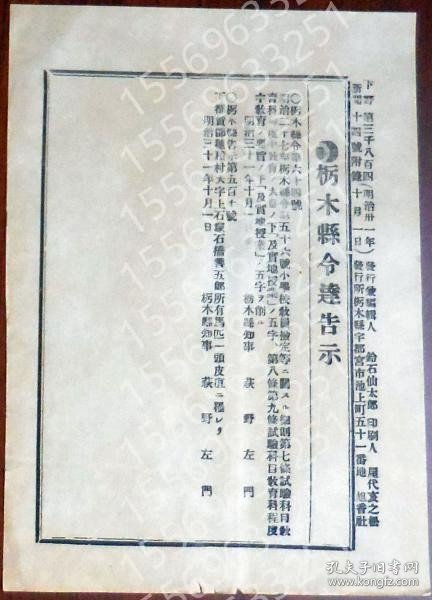 下野
第三千八百四
十四號附錄
(明治卅一年
十月一日)
發行兼編輯人 鈴石仙太郎 印刷人
發行所栃木縣宇都宮市池上町五十一番地 旭香社
栃木縣令達告示
〇栃木縣令第六十四號
明治二十七年栃木縣令第五十六號小學校教員檢定等ニ關スル細則第七條試驗科目教
育科程度中教育ノ大意ノ下「及實地授業」ノ五字、第八條第九條試驗科目教育科程度
中教育ノ要旨ノ下「及實地授業」ノ五字ヲ削ル
明治三十一年十月一日 栃木縣知事 萩野左門
〇栃木縣告示第五百十號
下都賀郡 村大字上石塚石橋善五郎所有馬匹一頭皮疽ニ罹レリ
明治三十一年十月一日 栃木縣知事 萩野左門
15569633251
孔夫子旧书网
kongfz.com